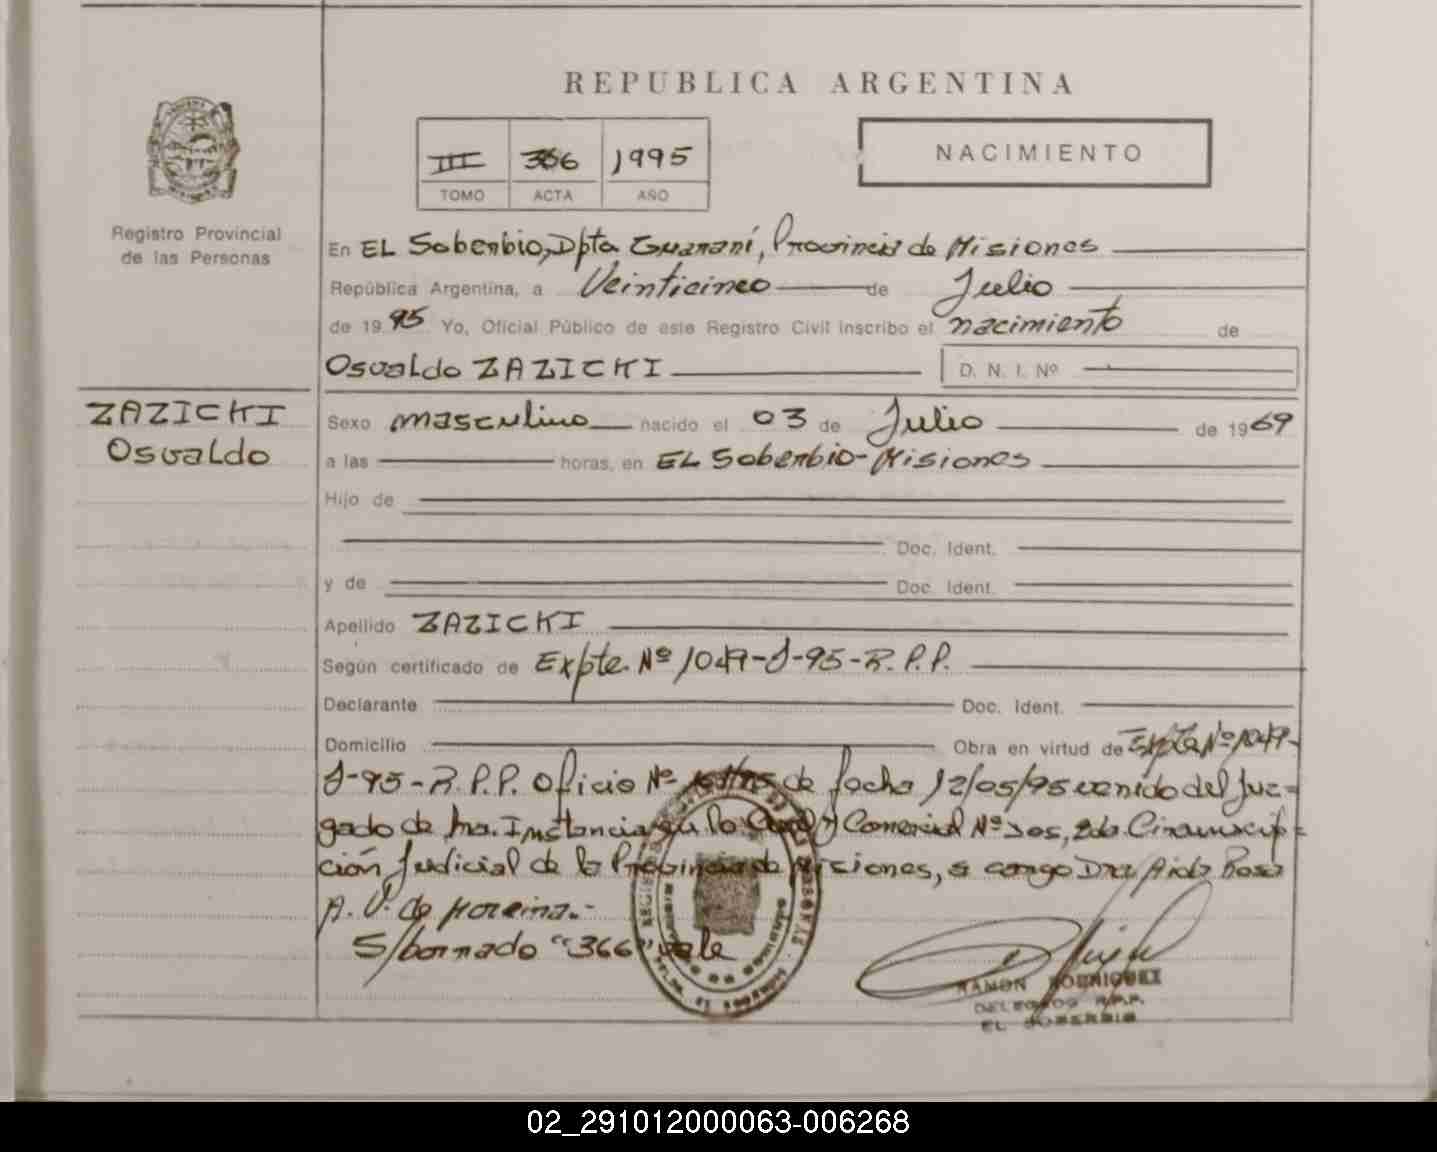 REPUBLICA ARGENTINA
III 366 1995
TOMO ACTA AÑO
NACIMIENTO
Registro Provincial
de las Personas
En EL Soberbio, Dpto Guaraní, Provincia de Misiones
República Argentina, a Veinticinco de Julio
de 1995 Yo, Oficial Público de este Registro Civil inscribo el nacimiento de
Osvaldo ZAZICKI D. N. I. Nº
ZAZICKI
Osvaldo
Sexo masculino nacido el 03 de Julio de 1969
a las horas, en EL Soberbio-Misiones
Hijo de
Doc. Ident.
y de Doc. Ident.
Apellido ZAZICKI
Según certificado de Expte. Nº 1049-J-95-R.P.P.
Declarante Doc. Ident.
Domicilio Obra en virtud de Expte Nº 1049-
J-95-R.P.P. Oficio Nº de fecha 12/05/95 venido del Juz-
gado de 1ra. Instancia en lo Civil y Comercial Nº Dos, 2da. Circunscrip-
ción Judicial de la Provincia de Misiones, a cargo Dra Aida Rosa
A. V. de Moreira.-
S/borrado "366" vale
RAMON RODRIGUEZ
DELEGADO R.P.P.
EL SOBERBIO
02_291012000063-006268